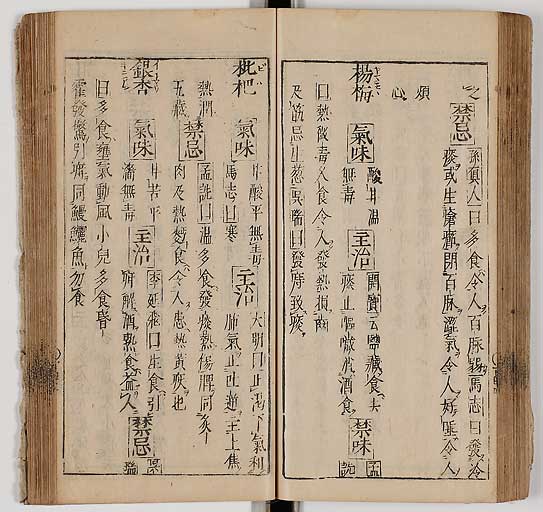 之禁忌孫真人曰多食令人百脉弱馬志曰發冷
痰或生瘡癤閉百脉澁氣令人好唾令人
煩心
楊梅氣味酸甘温
無毒主治開寶云鹽藏食去
痰止嘔噦消酒食禁味孟
詵
曰熱微毒久食令人發熱損齒
及筋忌生葱瑞曰發瘡致痰
枇杷氣味甘酸平無毒
馬志曰寒主治大明曰止渴下氣利
肺氣止吐逆主上焦
熱潤
五臟禁忌孟詵曰温多食發痰熱傷脾同炙
肉及熱麪食令人患熱黄疾也
銀杏氣味甘苦平
濇無毒主治李廷飛曰生食引
疳解酒熱食益人禁忌
瑞
曰多食壅氣動風小兒多食昏
霍發驚引疳同鰻鱺魚勿食